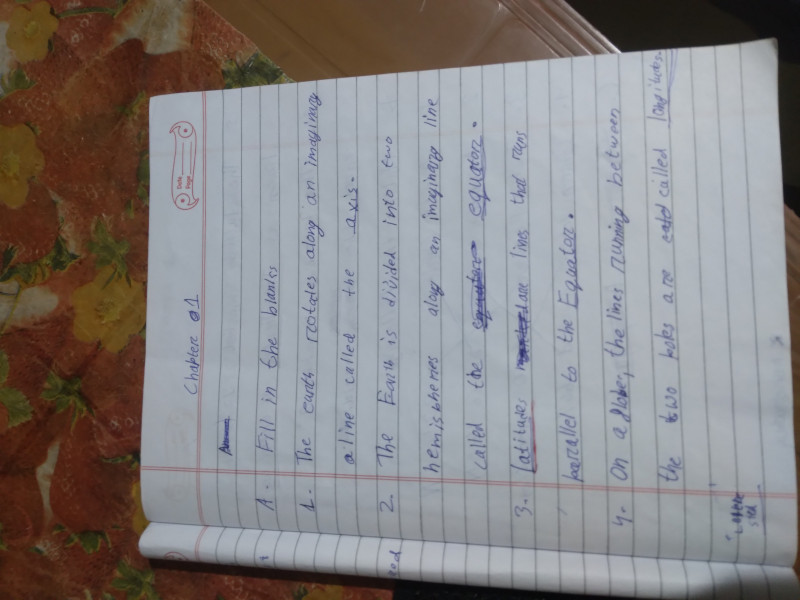 Date
Page
Chapter 01
A. Fill in the blanks
1. The earth rotates along an imaginary
a line called the axis.
2. The Earth is divided into two
hemispheres along an imaginary line
called the equator.
3. latitudes are lines that runs
parallel to the Equator.
4. On a globe, the lines running between
the two poles are called longitudes.